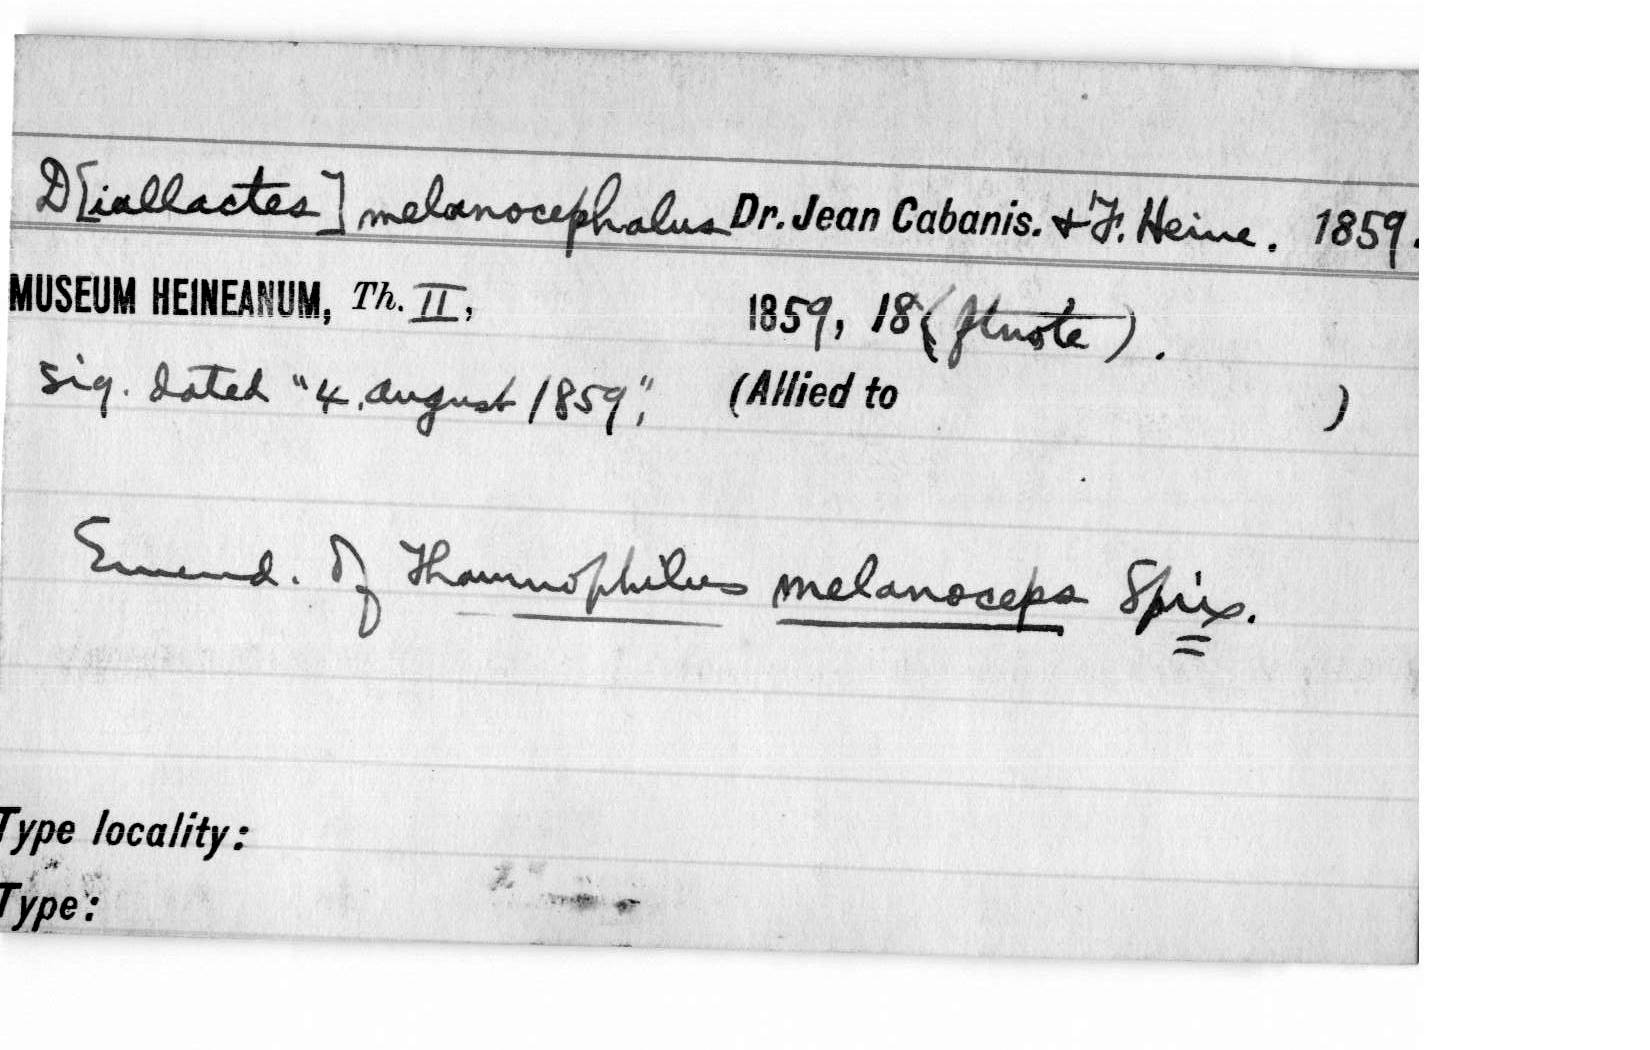 D[iallactes] melanocephalus Dr. Jean Cabanis. & F. Heine. 1859.
MUSEUM HEINEANUM, Th. II, 1859, 18 (ftnote).
sig. dated "4. August 1859", (Allied to )
Emend. of Thamnophilus melanoceps Spix.
Type locality:
Type: